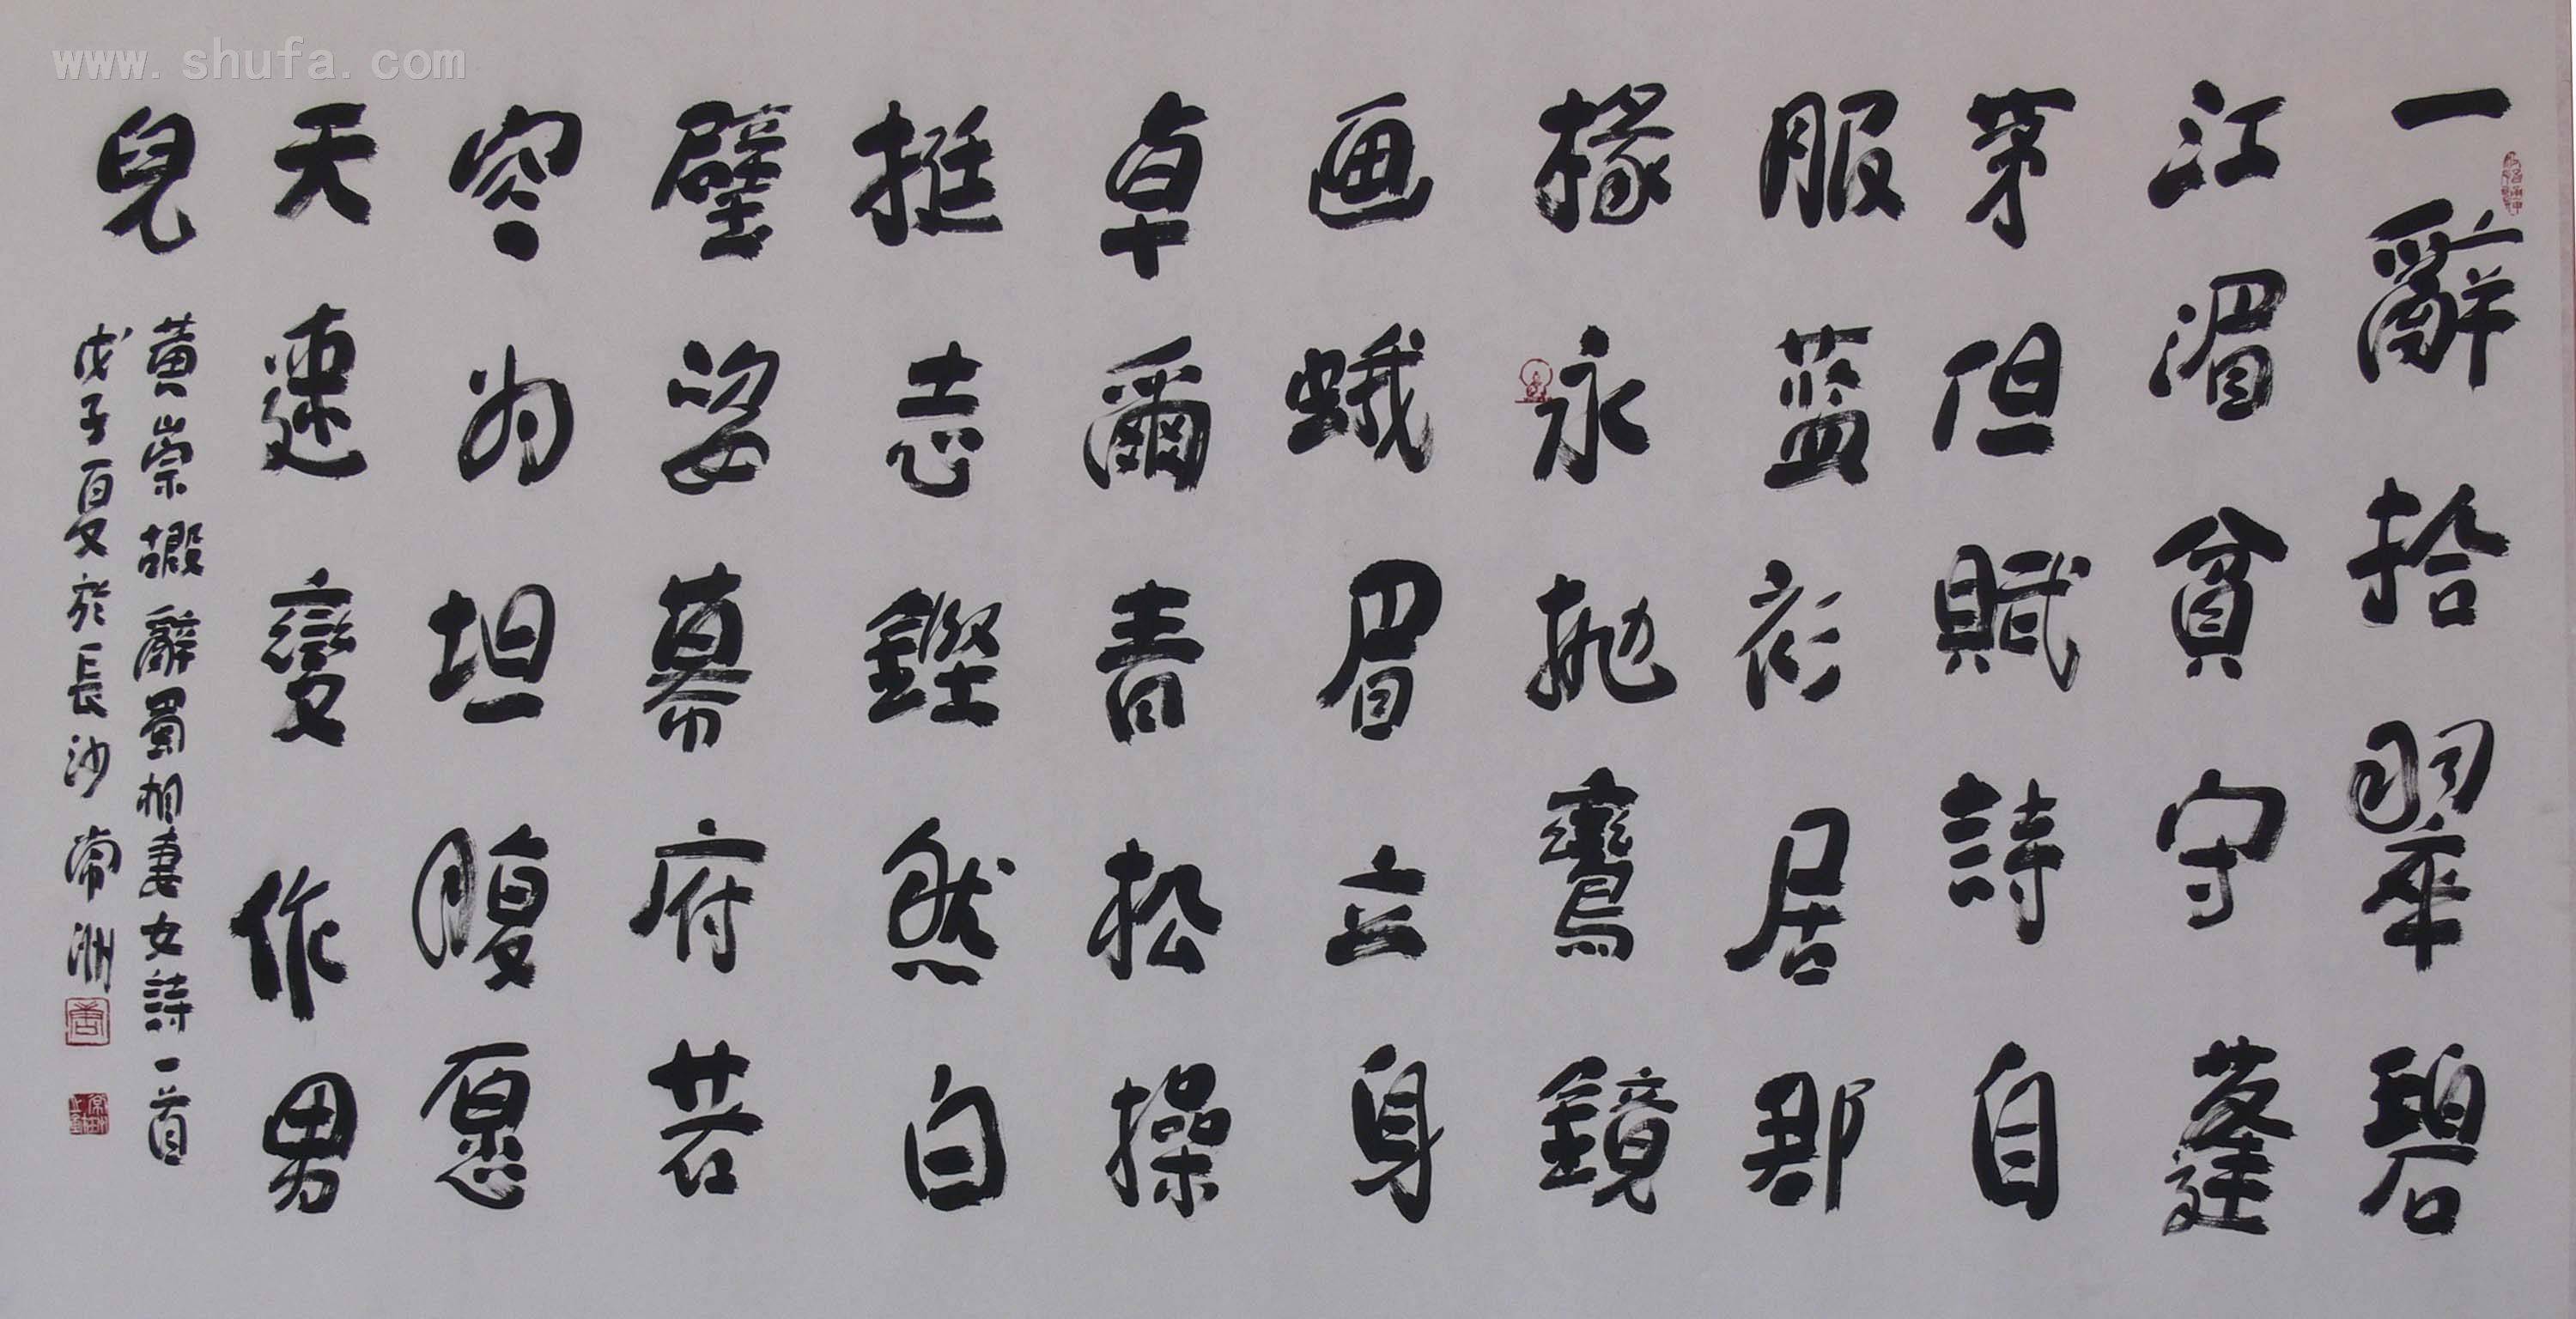 www.shufa.com
一辭拾翠碧
江湄貧守蓬
茅但賦詩自
服蓝衫居郡
掾永拋鸞鏡
画蛾眉立身
卓爾青松操
挺志鏗然白
璧姿幕府若
容为坦腹愿
天速變作男
兒
黃崇嘏辭蜀相妻女詩一首
戊子夏於長沙